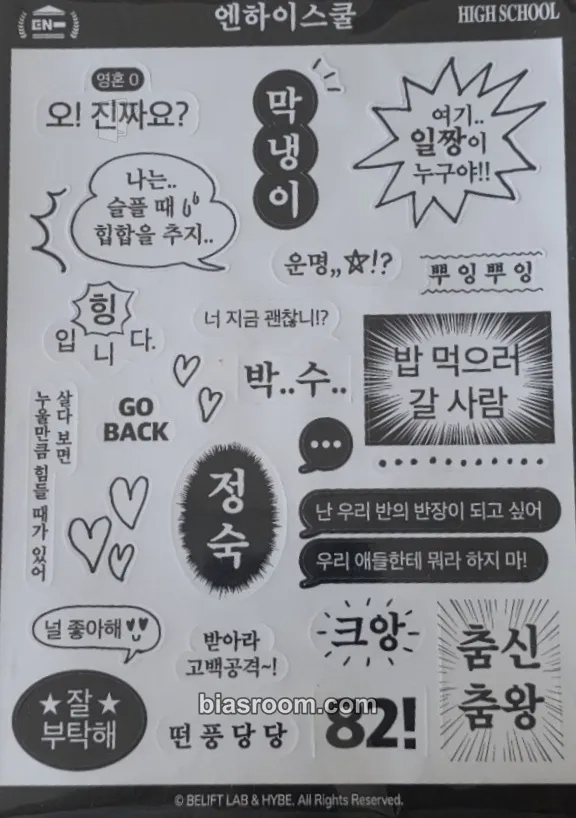 EN-
엔하이스쿨
HIGH SCHOOL
영혼 0
오! 진짜요?
막
냉
이
여기..
일짱이
누구야!!
나는..
슬플 때
힙합을 추지..
운명,,☆!?
뿌잉뿌잉
힝
입니다.
너 지금 괜찮니!?
박..수..
밥 먹으러
갈 사람
살다 보면
누울만큼 힘들 때가 있어
GO
BACK
정
숙
난 우리 반의 반장이 되고 싶어
우리 애들한테 뭐라 하지 마!
널 좋아해
받아라
고백공격~!
크앙
춤신
춤왕
★잘★
부탁해
떤풍당당
82!
biasroom.com
© BELIFT LAB & HYBE. All Rights Reserved.